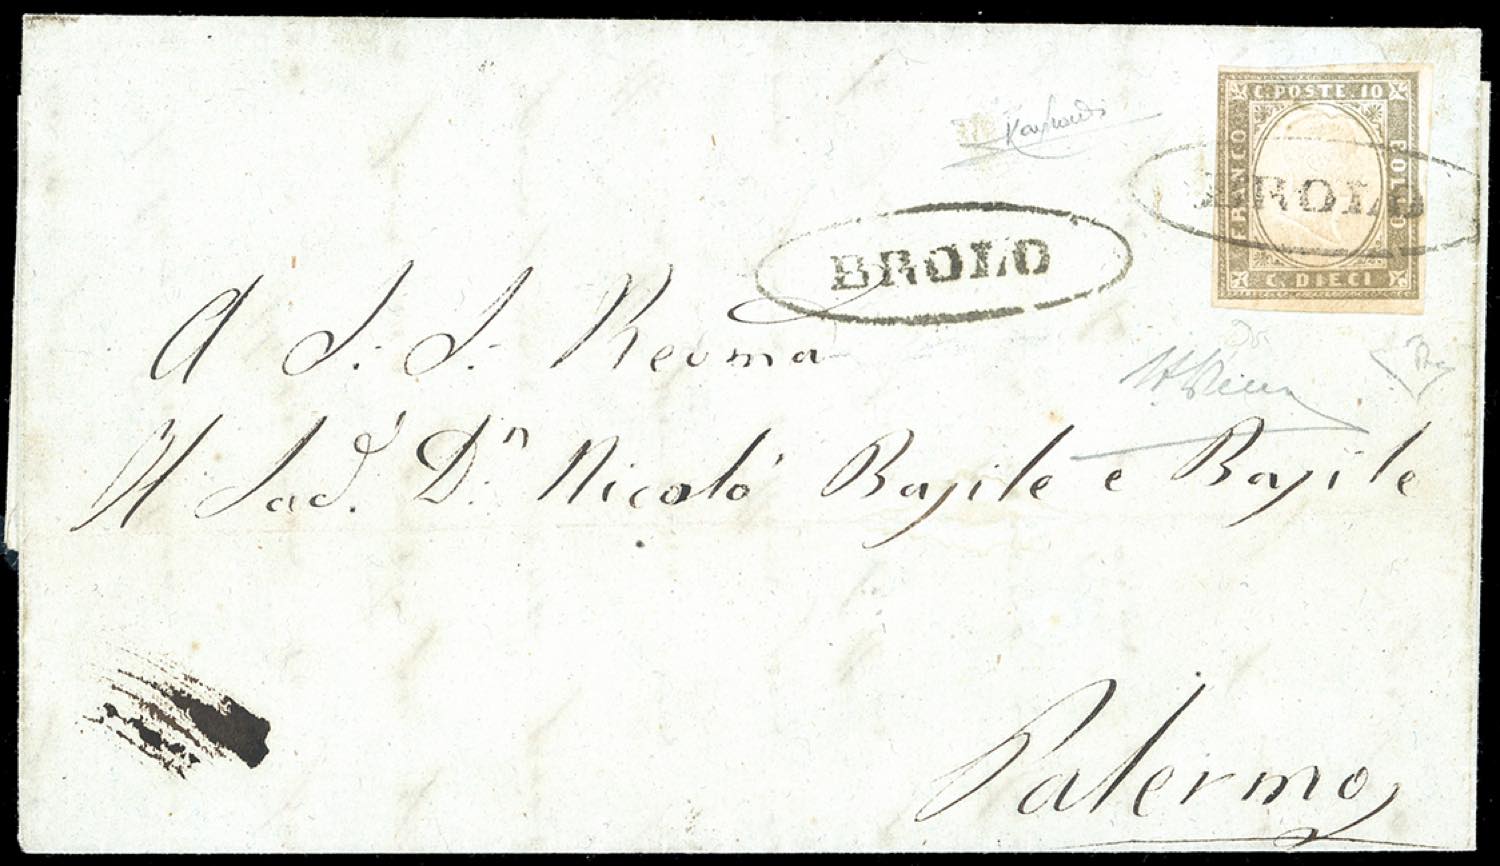 C. POSTE. 10
FRANCO
BOLLO
C. DIECI
BROLO
BROLO
A S. S. Reuma
Al Sad.e D.n Nicolò Basile e Basile
Palermo